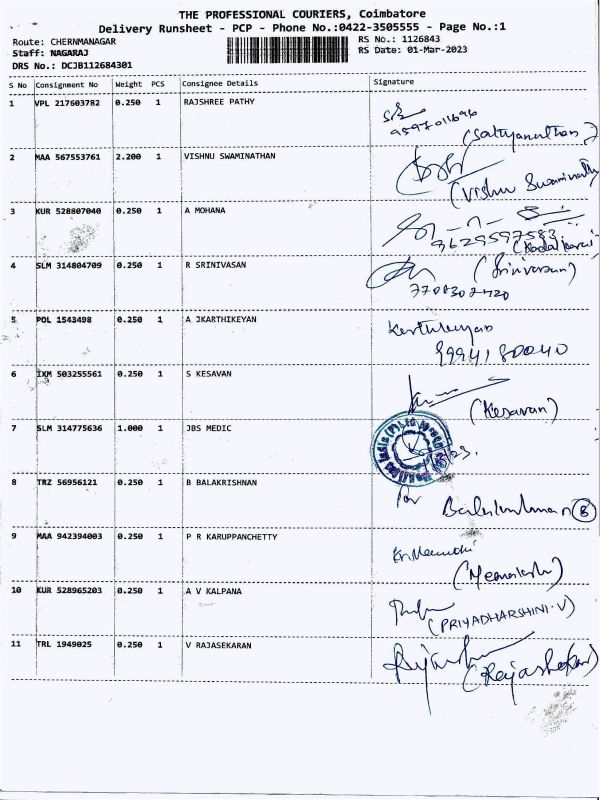 THE PROFESSIONAL COURIERS, Coimbatore
Delivery Runsheet - PCP - Phone No.:0422-3505555 - Page No.:1
Route: CHERNMANAGAR
RS No.: 1126843
Staff: NAGARAJ
RS Date: 01-Mar-2023
DRS No.: DCJB112684301
S No Consignment No Weight PCS Consignee Details Signature
1 VPL 217603782 0.250 1 RAJSHREE PATHY
9597011696
(Sathyanathan)
2 MAA 567553761 2.200 1 VISHNU SWAMINATHAN
(Vishnu Swaminath
3 KUR 528807040 0.250 1 A MOHANA
9629597583
4 SLM 314804709 0.250 1 R SRINIVASAN
(Srinivasan)
7708302420
5 POL 1543498 0.250 1 A JKARTHIKEYAN
99941 80040
6 IXM 503255561 0.250 1 S KESAVAN
(Kesavan)
7 SLM 314775636 1.000 1 JBS MEDIC
8 TRZ 56956121 0.250 1 B BALAKRISHNAN
for
9 MAA 942394003 0.250 1 P R KARUPPANCHETTY
10 KUR 528965203 0.250 1 A V KALPANA
(PRIYADHARSHINI.V)
11 TRL 1949025 0.250 1 V RAJASEKARAN